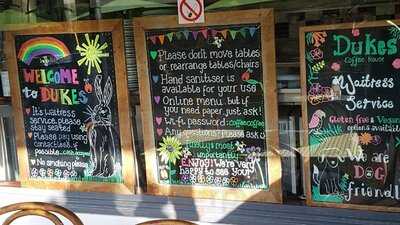 WELCOME
TO DUKES
It's waitress
service please
stay seated
Please pay using
contactless if
possible
No smoking please
Please don't move tables
or rearrange tables/chairs
Hand sanitiser is
available for your use
Online menu but if
you need paper just ask!
Wi-fi password:
Any questions? Please ask
Firstly & most
importantly
ENJOY! We're very
happy to see you
Dukes
Coffee house
Waitress
Service
Gluten Free & Vegan
available
We are
DOG
friendly